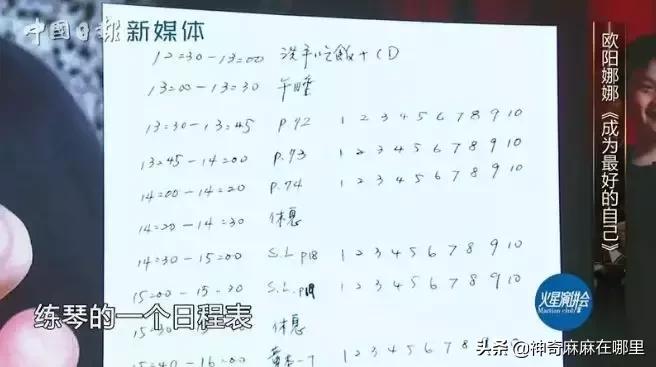 中國日報 新媒体
12=30-13=00 洗手吃飯+CD
13=00-13=30 午睡
13=30-13=45 P.92 1 2 3 4 5 6 7 8 9 10
13=45-14=00 P.93 1 2 3 4 5 6 7 8 9 10
14=00-14=20 P.94 1 2 3 4 5 6 7 8 9 10
14=20-14=30 休息
14=30-15=00 S.L P18 1 2 3 4 5 6 7 8 9 10
15=00-15=30 S.L. P19 1 2 3 4 5 6 7 8 9 10
休息
15=40-16=00 1 2 3 4 5 6 7 8 9 10
练琴的一个日程表
欧阳娜娜《成为最好的自己》
火星演讲会
Martian club
头条 @神奇麻麻在哪里